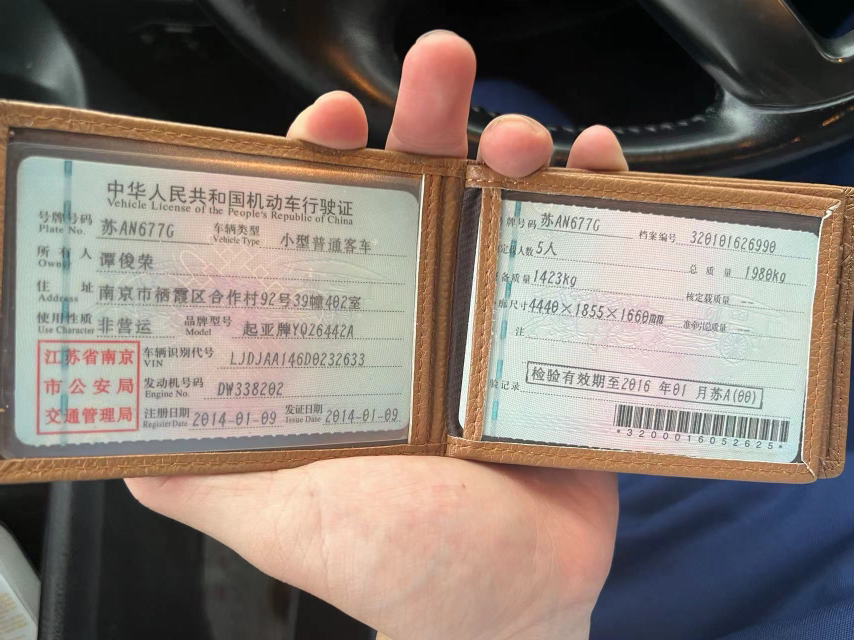 中华人民共和国机动车行驶证
Vehicle License of the People's Republic of China
号牌号码 苏AN677G 车辆类型 小型普通客车
Plate No. Vehicle Type
所有人 谭俊荣
Owner
住址 南京市栖霞区合作村92号39幢402室
Address
使用性质 非营运 品牌型号 起亚牌YQZ6442A
Use Character Model
江苏省南京
市公安局
交通管理局
车辆识别代号 LJDJAA146D0232633
VIN
发动机号码 DW338202
Engine No.
注册日期 2014-01-09 发证日期 2014-01-09
Register Date Issue Date
牌号码 苏AN677G 档案编号 320101626990
人数 5人 总质量 1980kg
备质量 1423kg 核定载质量 --
廓尺寸 4440×1855×1660mm 准牵引总质量 --
注
验记录 检验有效期至2016年01月苏A(00)
*3200016052625*